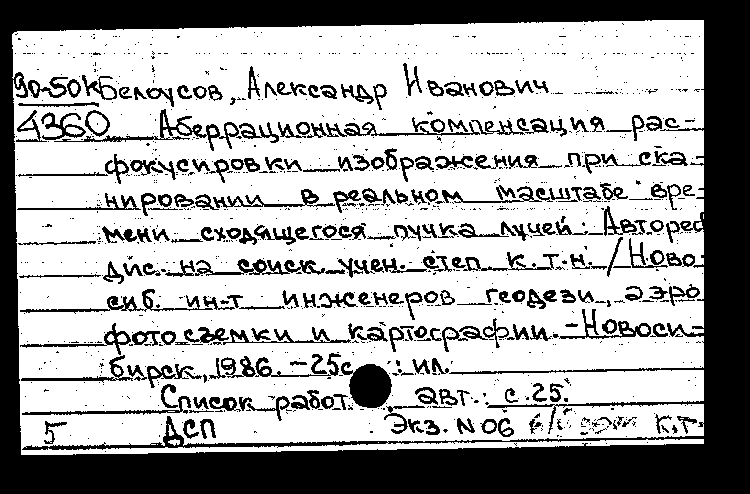 90-50к Белоусов, Александр Иванович
4360 Аберрационная компенсация рас-
фокусировки изображения при ска-
нировании в реальном масштабе вре-
мени сходящегося пучка лучей: Автореф
дис. на соиск. учен. степ. к.т.н. / Ново-
сиб. ин-т инженеров геодези, аэро
фотосъемки и картографии. - Новоси-
бирск, 1986. - 25с. : ил.
Список работ авт.: с. 25.
5 ДСП Экз. N 06 к.т.